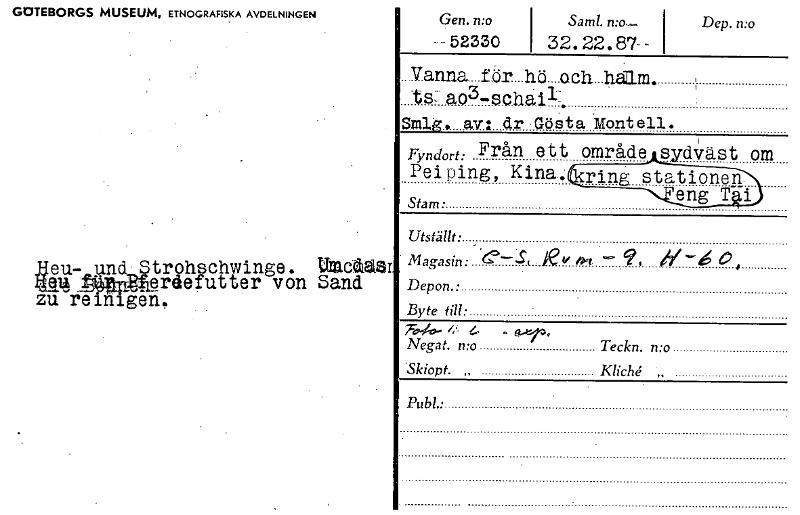 GÖTEBORGS MUSEUM, ETNOGRAFISKA AVDELNINGEN
Heu- und Strohschwinge. Um das
Heu für Pferdefutter von Sand
zu reinigen.
Gen. n:o Saml. n:o Dep. n:o
52330 32.22.87
Vanna för hö och halm.
ts ao3-schai1.
Smlg. av: dr Gösta Montell.
Fyndort: Från ett område sydväst om
Peiping, Kina. (kring stationen
Feng Tai
Stam:
Utställt:
Magasin: G-S. Rum-9. H-60.
Depon.:
Byte till:
Foto exp.
Negat. n:o Teckn. n:o
Skiopt. „ Kliché „
Publ.: